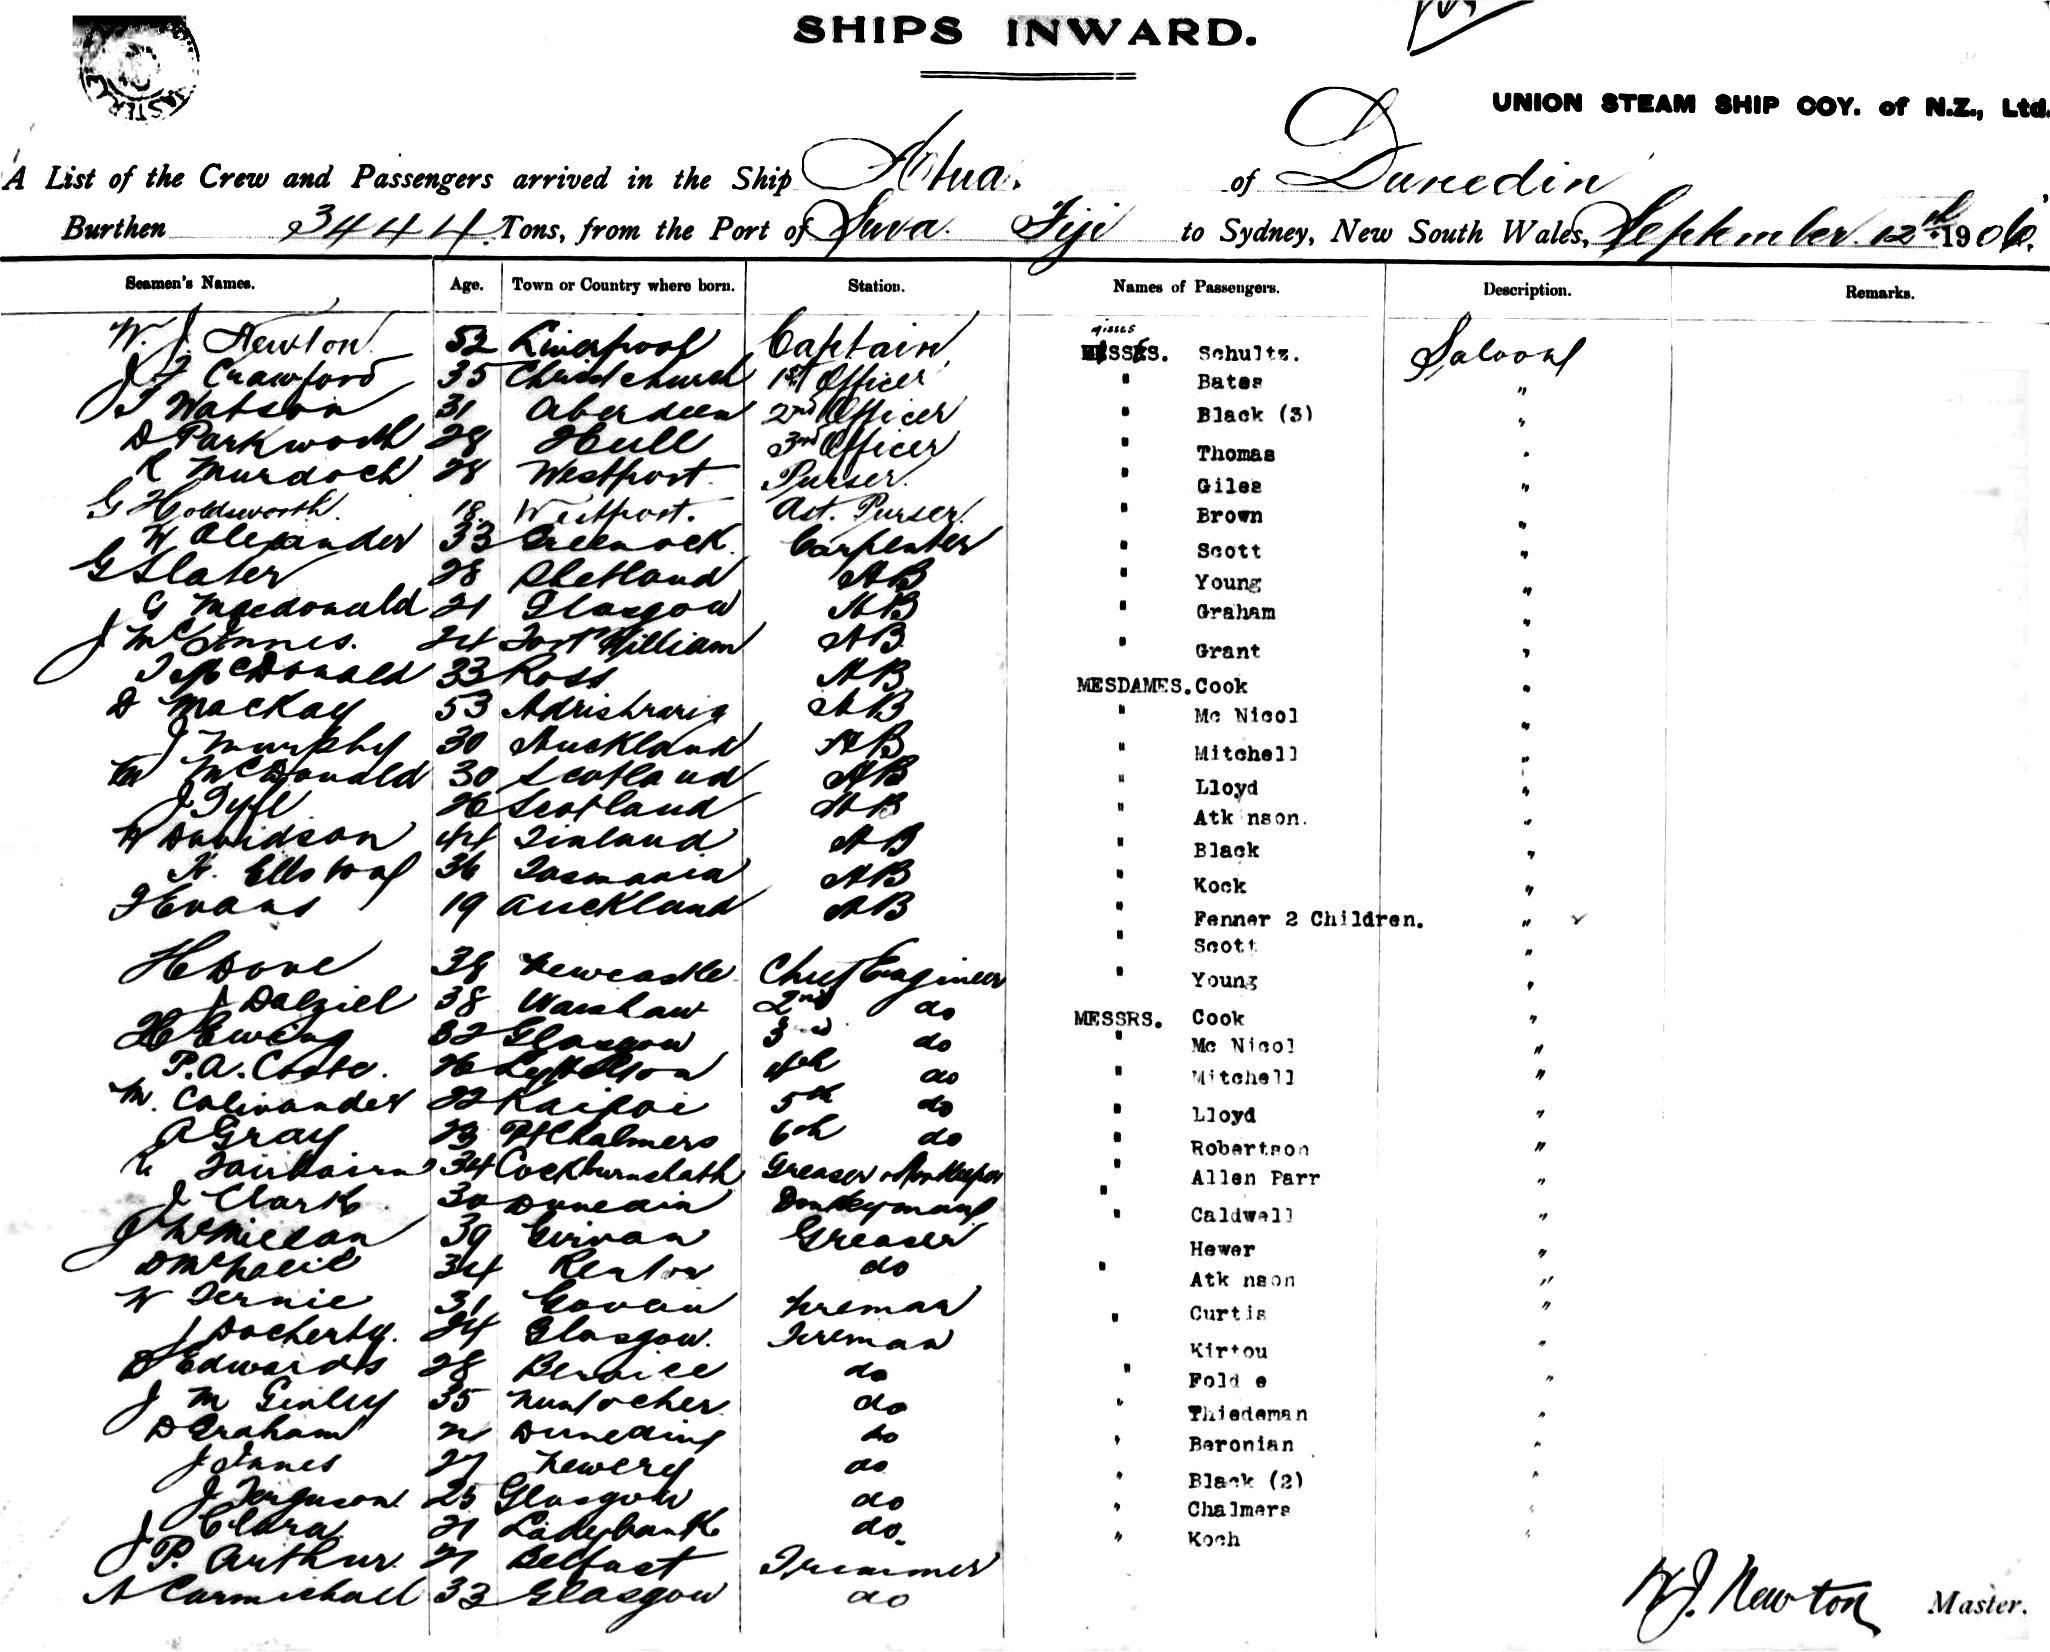 SHIPS INWARD.
UNION STEAM SHIP COY. of N.Z., Ltd.
A List of the Crew and Passengers arrived in the Ship Atua. of Dunedin
Burthen 3444 Tons, from the Port of Suva Fiji to Sydney, New South Wales, September 12th 1906.
Seamen's Names. Age. Town or Country where born. Station. Names of Passengers. Description. Remarks.
W. J. Newton 52 Liverpool Captain
J F Crawford 35 Christchurch 1st Officer
T Watson 31 Aberdeen 2nd Officer
D Parkworth 28 Hull 3rd Officer
R Murdoch 28 Westport Purser.
G Holdsworth 18 Westport. Ast. Purser.
W Alexander 33 Greenock Carpenter
G Slater 28 Shetland AB
G Macdonald 21 Glasgow AB
J McInnes. 24 Fort William AB
J McDonald 33 Ross AB
D MacKay 53 AB
J Murphy 30 Auckland AB
McDonald 30 Scotland AB
J Fyfe 26 Scotland AB
W Davidson 44 Finland AB
36 Tasmania AB
J Evans 19 Auckland AB
H Dove 38 Newcastle Chief Engineer
J Dalziel 38 2nd do
H Ewing 32 Glasgow 3rd do
P. A. 26 Lyttelton 4th do
M. 22 Kaipoi 5th do
A Gray 23 Pt Chalmers 6th do
Fairbairn 34 Cockburnspath Greaser
J Clark 30 Dunedin Donkeyman
J McMillan 39 Girvan Greaser
D McPhail 34 Renton do
W Fernie 31 Govan Fireman
J Docherty. 24 Glasgow. Fireman
D Edwards 28 do
J M Ginley 35 do
D Graham 21 Dunedin do
J Innes 27 Newery do
J Ferguson 25 Glasgow do
J Clara 21 Ladybank do.
J P. Arthur 21 Belfast Trimmer
A Carmichael 33 Glasgow do
Misses
MESSES. Schultz. Saloon
" Bates "
" Black (3) "
" Thomas "
" Giles "
" Brown "
" Scott "
" Young "
" Graham "
" Grant "
MESDAMES. Cook "
" Mc Nicol "
" Mitchell "
" Lloyd "
" Atk nson. "
" Black "
" Kock "
" Fenner 2 Children. "
" Scott "
" Young "
MESSRS. Cook "
" Mc Nicol "
" Mitchell "
" Lloyd "
" Robertson "
" Allen Parr "
" Caldwell "
" Hewer "
" Atk nson "
" Curtis "
" Kirtou "
" Fold e "
" Thiedeman "
" Beronian "
" Black (2) "
" Chalmers "
" Koch "
W. J. Newton Master.